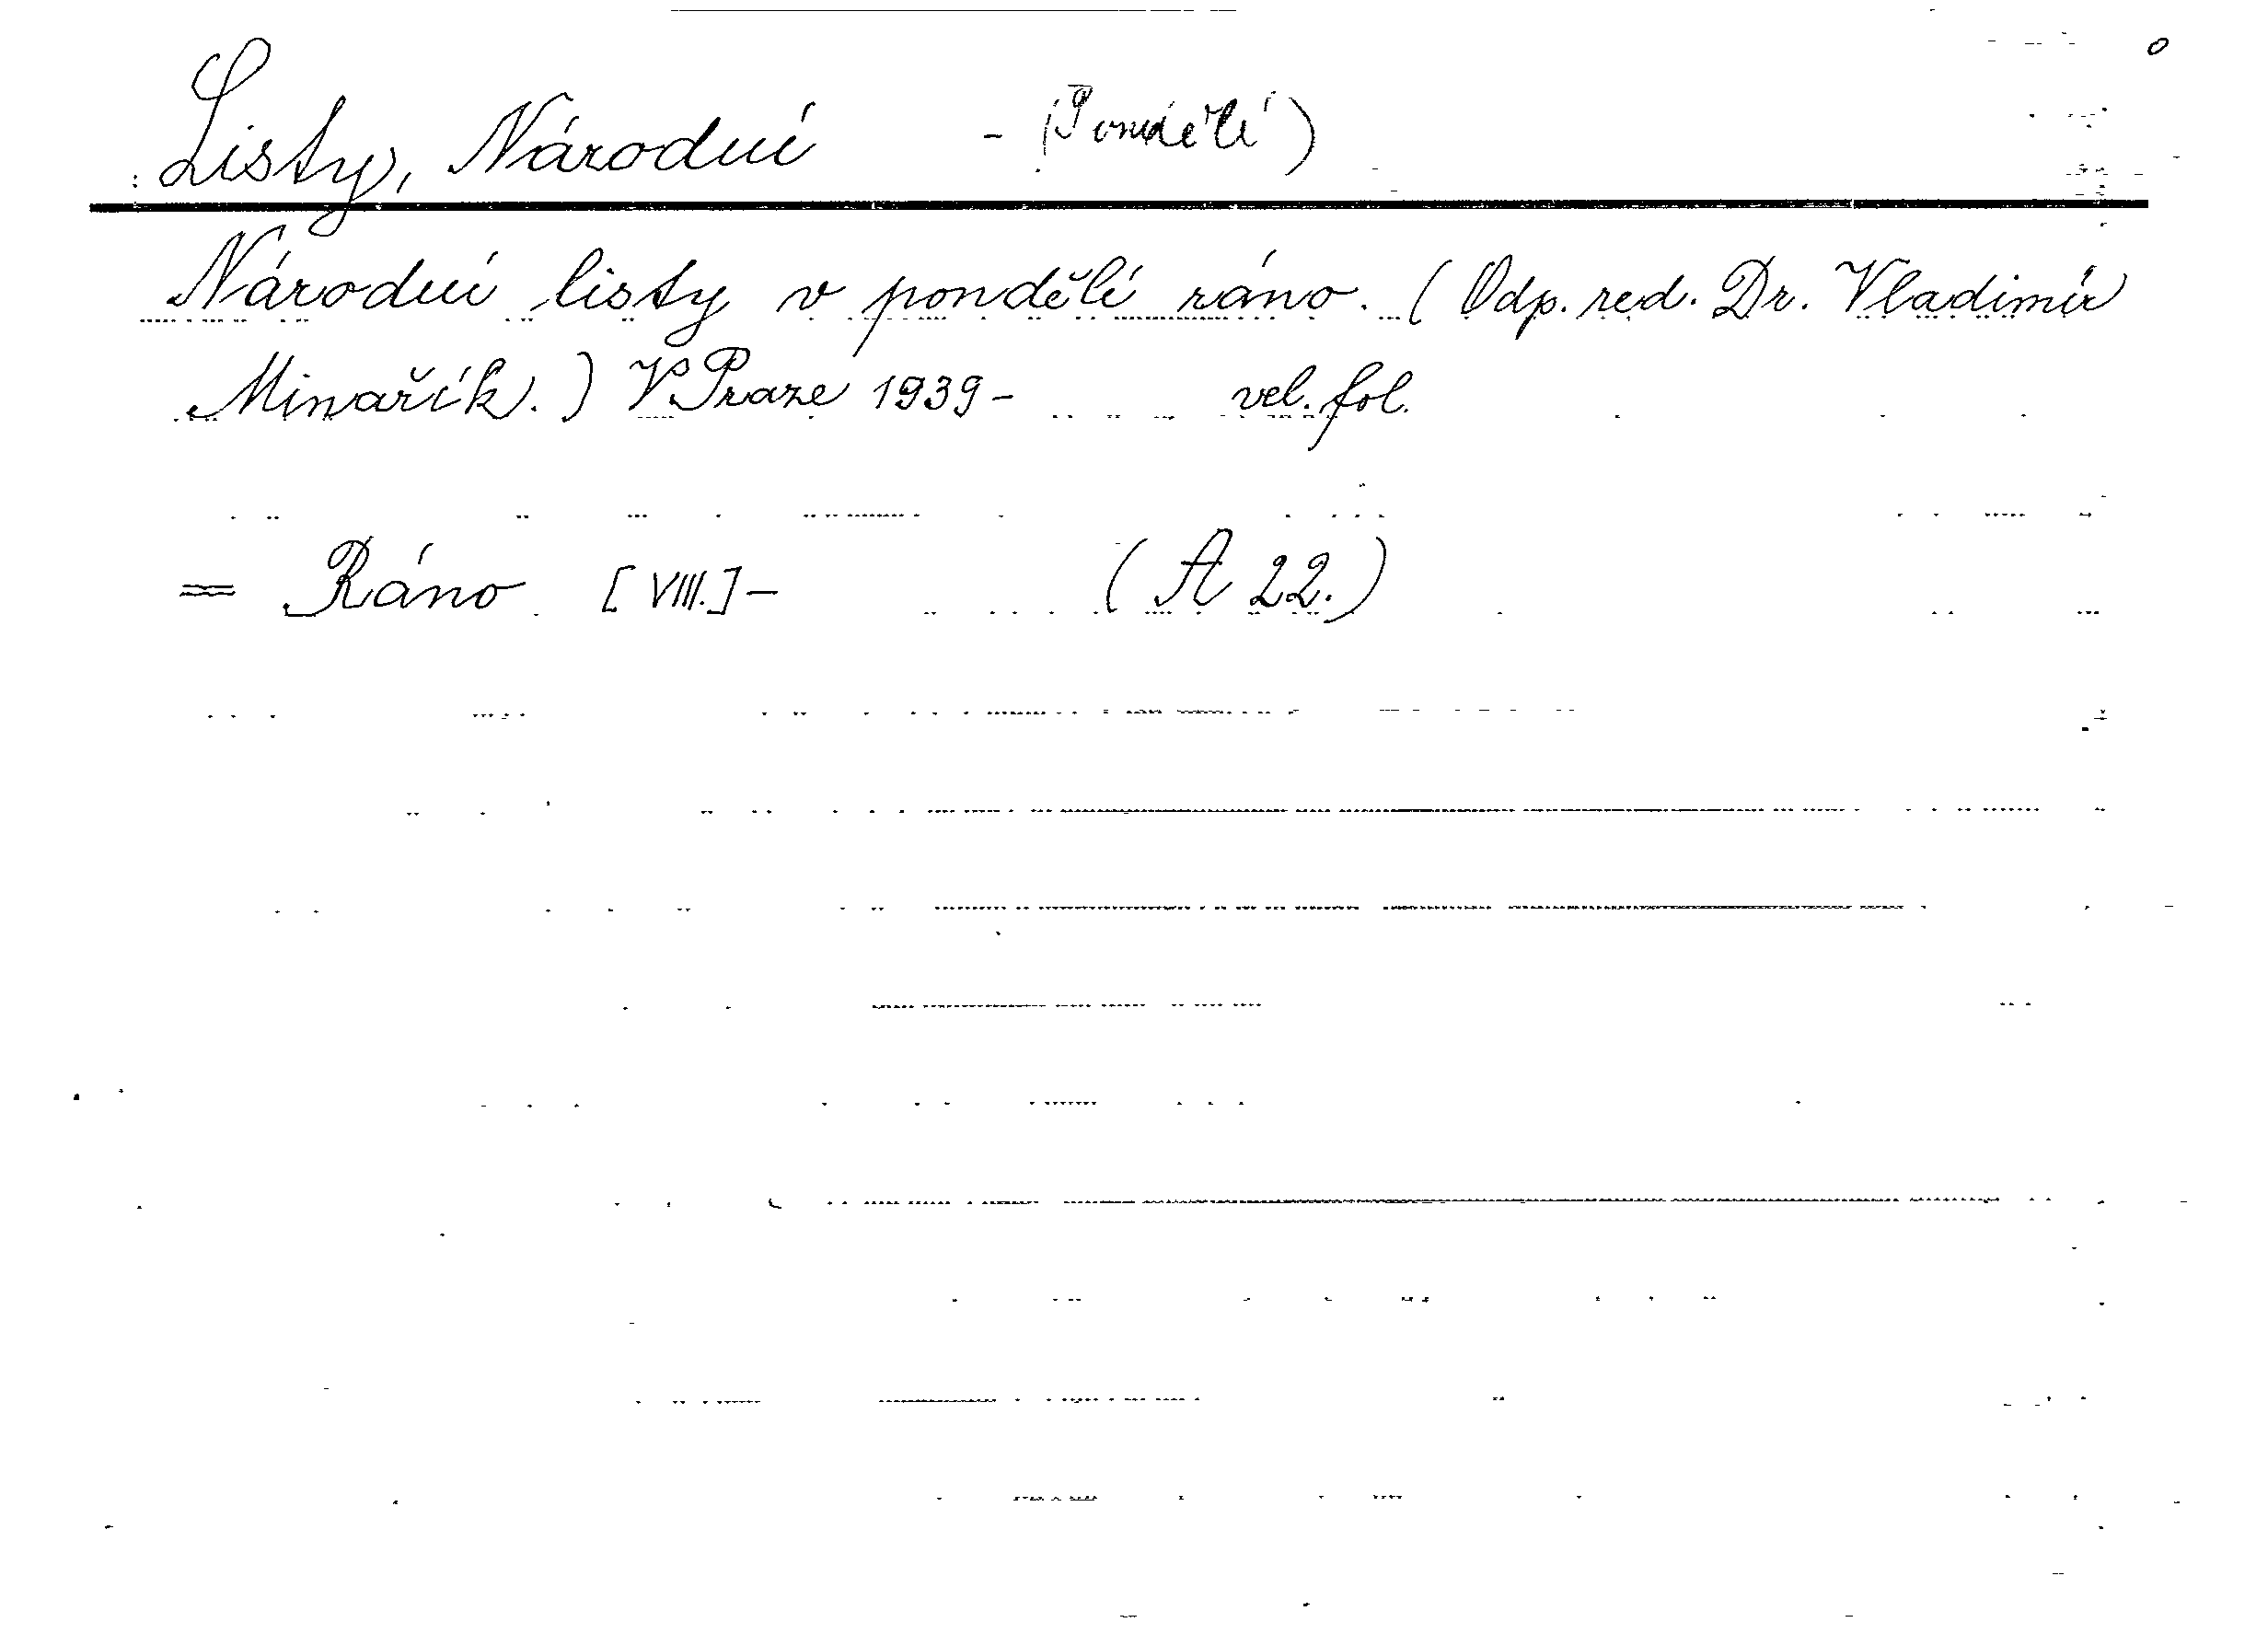 Listy, Národní - (Pondělí)
Národní listy v pondělí ráno. (Odp. red. Dr. Vladimír
Minařík.) V Praze 1939- vel. fol.
= Ráno [VIII.]- (A 22.)